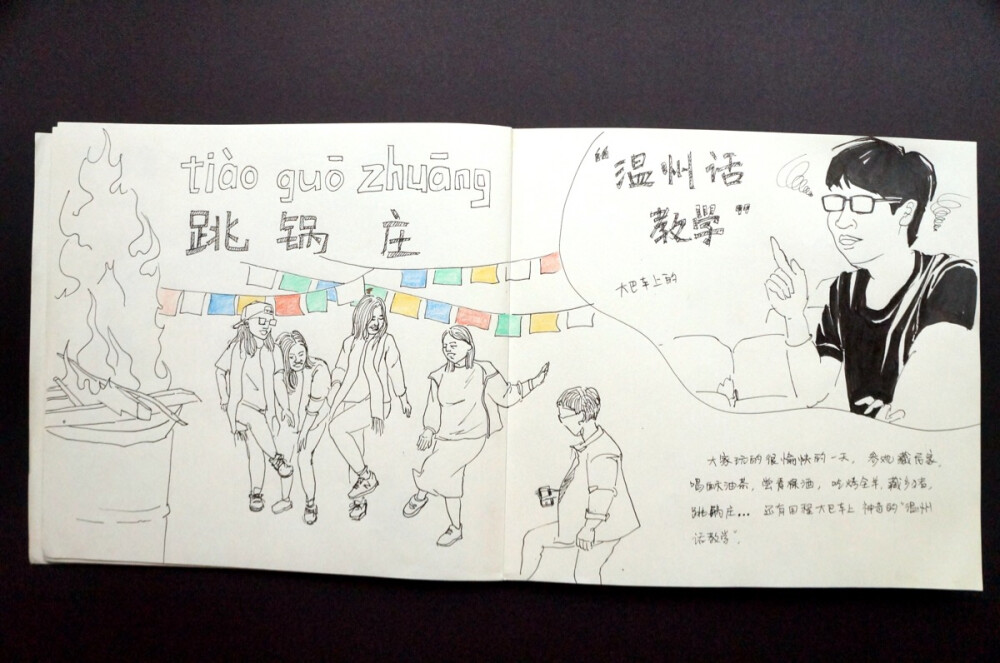 tiào guō zhuāng
跳锅庄
"温州话
教学"
大巴车上的
大家玩的很愉快的一天，参观藏民家，
喝酥油茶，尝青稞酒，吃烤全羊，藏乡猪，
跳锅庄... 还有回程大巴车上神奇的"温州
话教学".